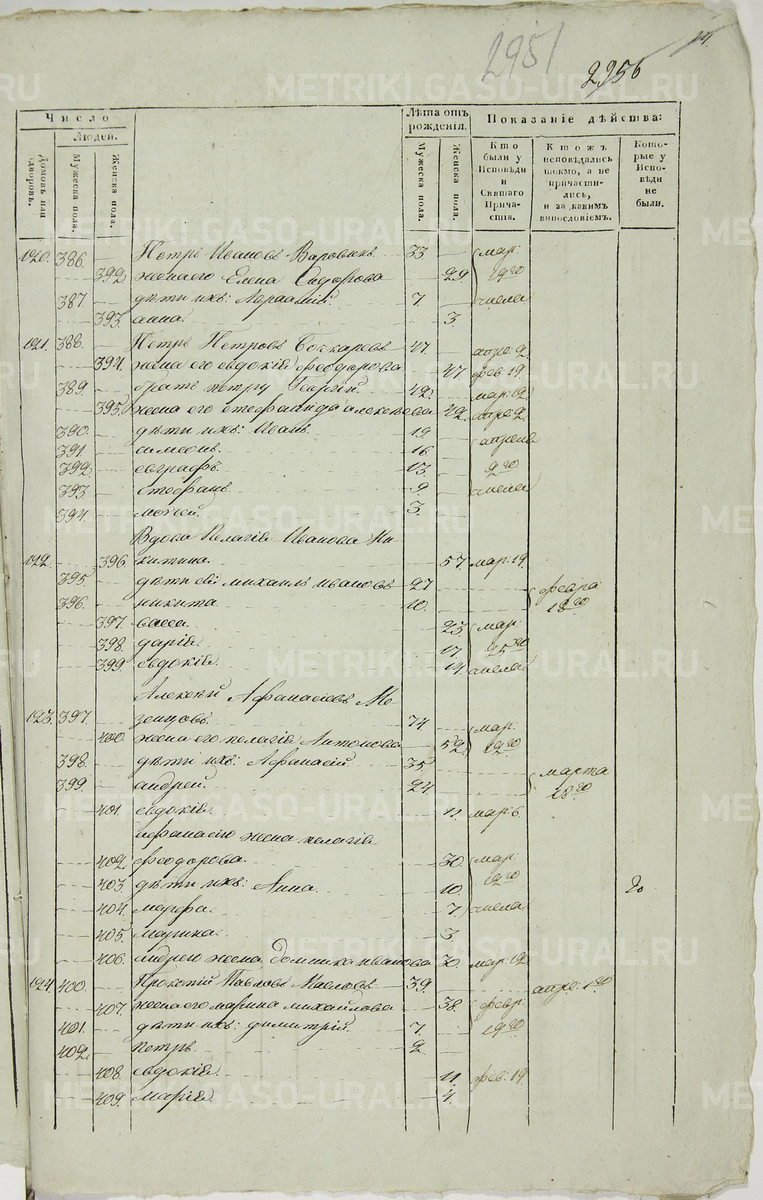 2951
2956
Число
Людей.
Домовъ или дворовъ.
Мужеска пола.
Женска пола.
Лѣта отъ рожденія.
Мужеска пола.
Женска пола.
Показаніе дѣйства:
Кто были у Исповѣди и Святаго Причастія.
Ктожъ исповѣдались токмо, а не причастились, и за какимъ винословіемъ.
Которые у Исповѣди не были.
120. 386. Петръ Ивановъ 33 мар:
392 жена его Елена Сидорова 29 12го
387. дѣти ихъ: Авраамій 7. числа
393. анна. 3.
121. 388. Петръ Петровъ Бочкаревъ 47 апре 2
394. жена его евдокія феодорова 47 фев: 19
389. братъ петру Георгій 42. мар: 12
395. жена его алексѣева 42 апре 2
390. дѣти ихъ: Иванъ 19
391. симеонъ 16 апреля
392. евграфъ. 13 2го
393. стефанъ. 9 числа
394. моисей. 3.
Вдова Пелагія Иванова Ни-
122. 396. китина. 57. мар: 19.
395. дѣти еѣ михаилъ ивановъ 27 февра
396. никита 10. 18го
397. васса. 23 мар:
398. дарія. 17 25го
399. евдокія. 14 числа
Алексѣй Афанасіевъ Ме-
123. 397. зенцовъ 74 мар:
400. жена его пелагія Антонова 52 12го
398. дѣти ихъ: Афанасій 35. марта
399. андрей. 24. 18го
401. евдокія. 11. мар: 6.
афанасію жена пелагія
402. феодорова. 30. мар:
403. дѣти ихъ: Анна. 10. 12го
404. марфа. 7 числа
405. марина. 3
406. андрею жена домника иванова 30. мар: 12
124. 400. Прокопій Павловъ 39. апре: 1го
407. жена его марина михайлова 38. февр.
401. дѣти ихъ: димитрій. 7 19го
402. петръ. 2
408. евдокія. 11. фев: 19.
409. марія. 4.
METRIKI.GASO-URAL.RU